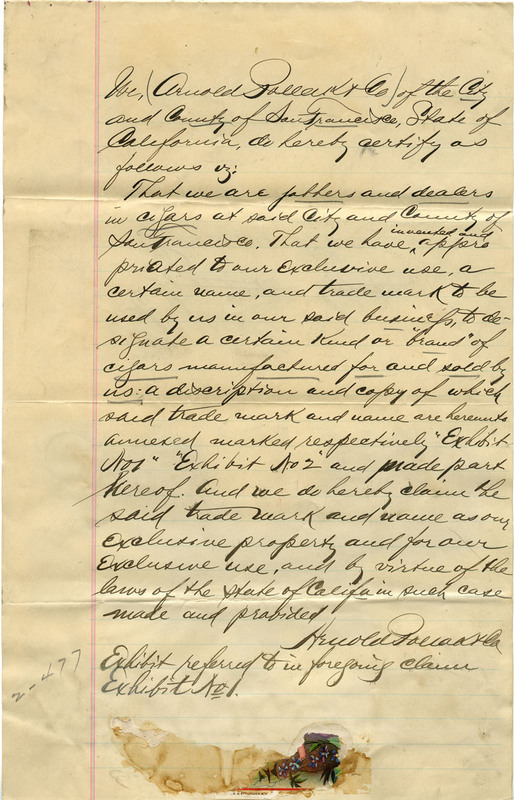 We, (Arnold Pollak & Co) of the City
and County of San Francisco, State of
California, do hereby certify as
follows viz:
That we are jobbers and dealers
in cigars at said City and County of
San Francisco. That we have invented and appro
priated to our exclusive use, a
certain name, and trade mark to be
used by us in our said business, to de-
signate a certain kind or "brand" of
cigars manufactured for and sold by
us: a discription and copy of which
said trade mark and name are hereunto
annexed marked respectively "Exhibit
No1" "Exhibit No 2" and made part
hereof. And we do hereby claim the
said trade mark and name as our
exclusive property and for our
exclusive use, and by virtue of the
laws of the State of Califa in such case
made and provided
Arnold Pollak & Co
Exhibit referred to in foregoing claim
Exhibit No 1.
2-477